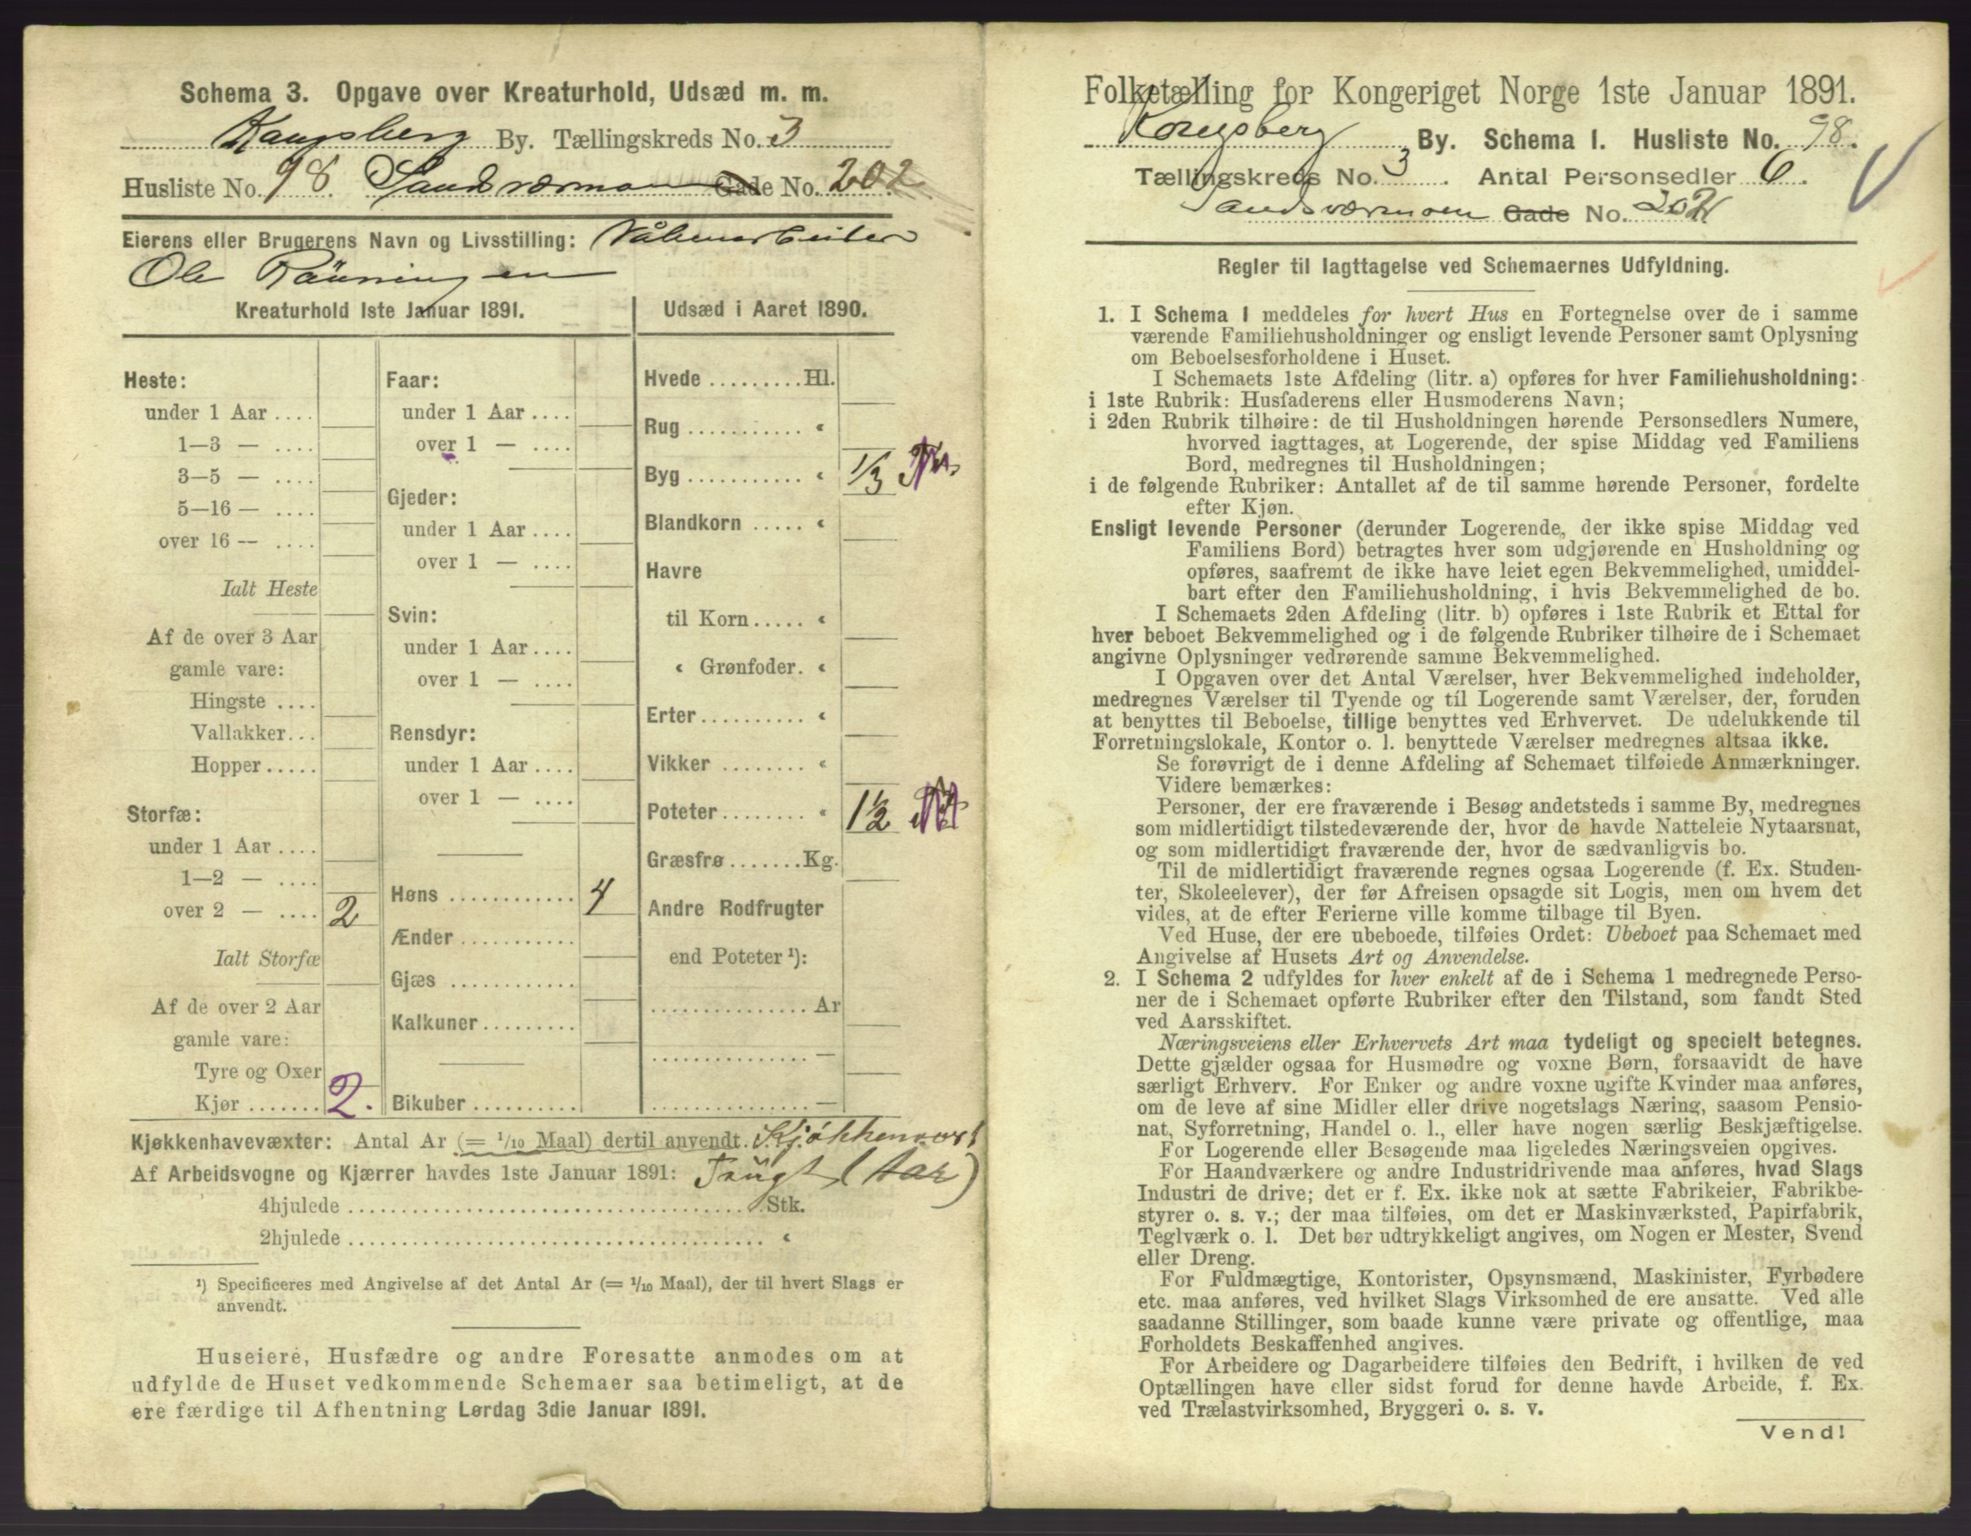 Schema 3. Opgave over Kreaturhold, Udsæd m. m.
Kongsberg By. Tællingskreds No. 3
Husliste No. 98. Sandsværmoen Gade No. 202
Eierens eller Brugerens Navn og Livsstilling: Våbenarbeider
Ole Rønningen
Kreaturhold 1ste Januar 1891.
Heste:
under 1 Aar ....
1—3 — ....
3—5 — ....
5—16 — ....
over 16 — ....
Ialt Heste
Af de over 3 Aar
gamle vare:
Hingste ....
Vallakker...
Hopper.....
Storfæ:
under 1 Aar ....
1—2 — ....
over 2 — .... 2
Ialt Storfæ
Af de over 2 Aar
gamle vare:
Tyre og Oxer
Kjør ....... 2.
Faar:
under 1 Aar ....
over 1 — ....
Gjeder:
under 1 Aar ....
over 1 — ....
Svin:
under 1 Aar ....
over 1 — ....
Rensdyr:
under 1 Aar ....
over 1 — ....
Høns ............ 4
Ænder ...........
Gjæs ............
Kalkuner.........
Bikuber ..........
Udsæd i Aaret 1890.
Hvede ......... Hl.
Rug ........... “
Byg ........... “ 1/3
Blandkorn ..... “
Havre
til Korn ..... “
“ Grønfoder. “
Erter .......... “
Vikker ........ “
Poteter ........ “ 1 1/2
Græsfrø ....... Kg.
Andre Rodfrugter
end Poteter ¹):
............... Ar
............... —
............... —
Kjøkkenhavevæxter: Antal Ar (= 1/10 Maal) dertil anvendt.
Af Arbeidsvogne og Kjærrer havdes 1ste Januar 1891:
4hjulede ..................................... Stk.
2hjulede ..................................... “
¹) Specificeres med Angivelse af det Antal Ar (= 1/10 Maal), der til hvert Slags er
anvendt.
Huseiere, Husfædre og andre Foresatte anmodes om at
udfylde de Huset vedkommende Schemaer saa betimeligt, at de
ere færdige til Afhentning Lørdag 3die Januar 1891.
Folketælling for Kongeriget Norge 1ste Januar 1891.
Kongsberg By. Schema 1. Husliste No. 98.
Tællingskreds No. 3. Antal Personsedler 6.
Sandsværmoen Gade No. 202
Regler til Iagttagelse ved Schemaernes Udfyldning.
1. I Schema 1 meddeles for hvert Hus en Fortegnelse over de i samme
værende Familiehusholdninger og ensligt levende Personer samt Oplysning
om Beboelsesforholdene i Huset.
I Schemaets 1ste Afdeling (litr. a) opføres for hver Familiehusholdning:
i 1ste Rubrik: Husfaderens eller Husmoderens Navn;
i 2den Rubrik tilhøire: de til Husholdningen hørende Personsedlers Numere,
hvorved iagttages, at Logerende, der spise Middag ved Familiens
Bord, medregnes til Husholdningen;
i de følgende Rubriker: Antallet af de til samme hørende Personer, fordelte
efter Kjøn.
Ensligt levende Personer (derunder Logerende, der ikke spise Middag ved
Familiens Bord) betragtes hver som udgjørende en Husholdning og
opføres, saafremt de ikke have leiet egen Bekvemmelighed, umiddel-
bart efter den Familiehusholdning, i hvis Bekvemmelighed de bo.
I Schemaets 2den Afdeling (litr. b) opføres i 1ste Rubrik et Ettal for
hver beboet Bekvemmelighed og i de følgende Rubriker tilhøire de i Schemaet
angivne Oplysninger vedrørende samme Bekvemmelighed.
I Opgaven over det Antal Værelser, hver Bekvemmelighed indeholder,
medregnes Værelser til Tyende og til Logerende samt Værelser, der, foruden
at benyttes til Beboelse, tillige benyttes ved Erhvervet. De udelukkende til
Forretningslokale, Kontor o. l. benyttede Værelser medregnes altsaa ikke.
Se forøvrigt de i denne Afdeling af Schemaet tilføiede Anmærkninger.
Videre bemærkes:
Personer, der ere fraværende i Besøg andetsteds i samme By, medregnes
som midlertidigt tilstedeværende der, hvor de havde Natteleie Nytaarsnat,
og som midlertidigt fraværende der, hvor de sædvanligvis bo.
Til de midlertidigt fraværende regnes ogsaa Logerende (f. Ex. Studen-
ter, Skoleelever), der før Afreisen opsagde sit Logis, men om hvem det
vides, at de efter Ferierne ville komme tilbage til Byen.
Ved Huse, der ere ubeboede, tilføies Ordet: Ubeboet paa Schemaet med
Angivelse af Husets Art og Anvendelse.
2. I Schema 2 udfyldes for hver enkelt af de i Schema 1 medregnede Perso-
ner de i Schemaet opførte Rubriker efter den Tilstand, som fandt Sted
ved Aarsskiftet.
Næringsveiens eller Erhvervets Art maa tydeligt og specielt betegnes.
Dette gjælder ogsaa for Husmødre og voxne Børn, forsaavidt de have
særligt Erhverv. For Enker og andre voxne ugifte Kvinder maa anføres,
om de leve af sine Midler eller drive nogetslags Næring, saasom Pensio-
nat, Syforretning, Handel o. l., eller have nogen særlig Beskjæftigelse.
For Logerende eller Besøgende maa ligeledes Næringsveien opgives.
For Haandværkere og andre Industridrivende maa anføres, hvad Slags
Industri de drive; det er f. Ex. ikke nok at sætte Fabrikeier, Fabrikbe-
styrer o. s. v.; der maa tilføies, om det er Maskinværksted, Papirfabrik,
Teglværk o. l. Det bør udtrykkeligt angives, om Nogen er Mester, Svend
eller Dreng.
For Fuldmægtige, Kontorister, Opsynsmænd, Maskinister, Fyrbødere
etc. maa anføres, ved hvilket Slags Virksomhed de ere ansatte. Ved alle
saadanne Stillinger, som baade kunne være private og offentlige, maa
Forholdets Beskaffenhed angives.
For Arbeidere og Dagarbeidere tilføies den Bedrift, i hvilken de ved
Optællingen have eller sidst forud for denne havde Arbeide, f. Ex.
ved Trælastvirksomhed, Bryggeri o. s. v.
Vend!